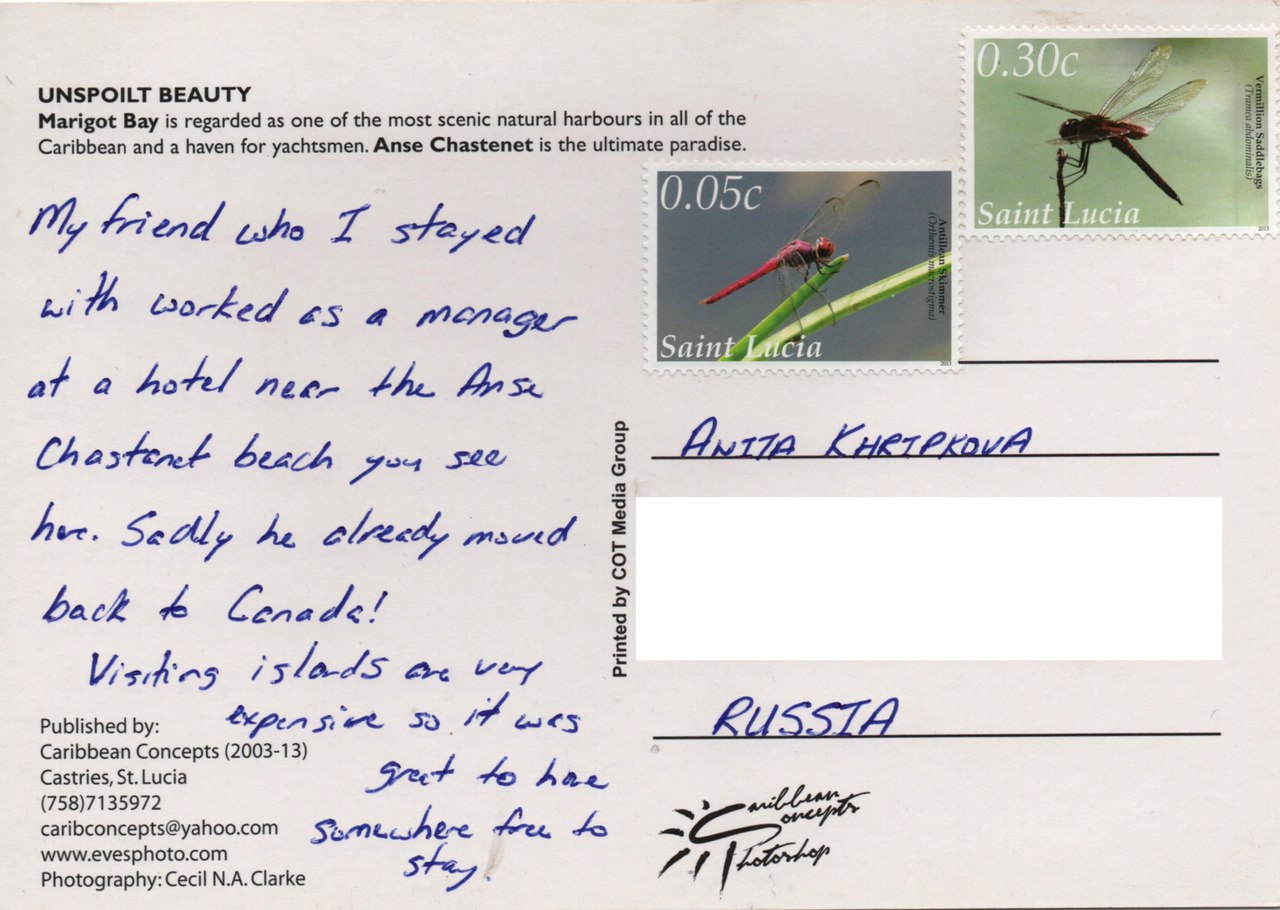 UNSPOILT BEAUTY
Marigot Bay is regarded as one of the most scenic natural harbours in all of the
Caribbean and a haven for yachtsmen. Anse Chastenet is the ultimate paradise.
My friend who I stayed
with worked as a manager
at a hotel near the Anse
Chastanet beach you see
here. Sadly he already moved
back to Canada!
Visiting islands are very
expensive so it was
great to have
somewhere free to
stay.
Published by:
Caribbean Concepts (2003-13)
Castries, St. Lucia
(758)7135972
caribconcepts@yahoo.com
www.evesphoto.com
Photography: Cecil N.A. Clarke
Printed by COT Media Group
0.05c
Antillean Skimmer
(Orthemis macrostigma)
Saint Lucia
2013
0.30c
Vermillion Saddlebags
(Tramea abdominalis)
Saint Lucia
2013
ANITA KHRIPKOVA
RUSSIA
Caribbean
Concepts
Photoshop